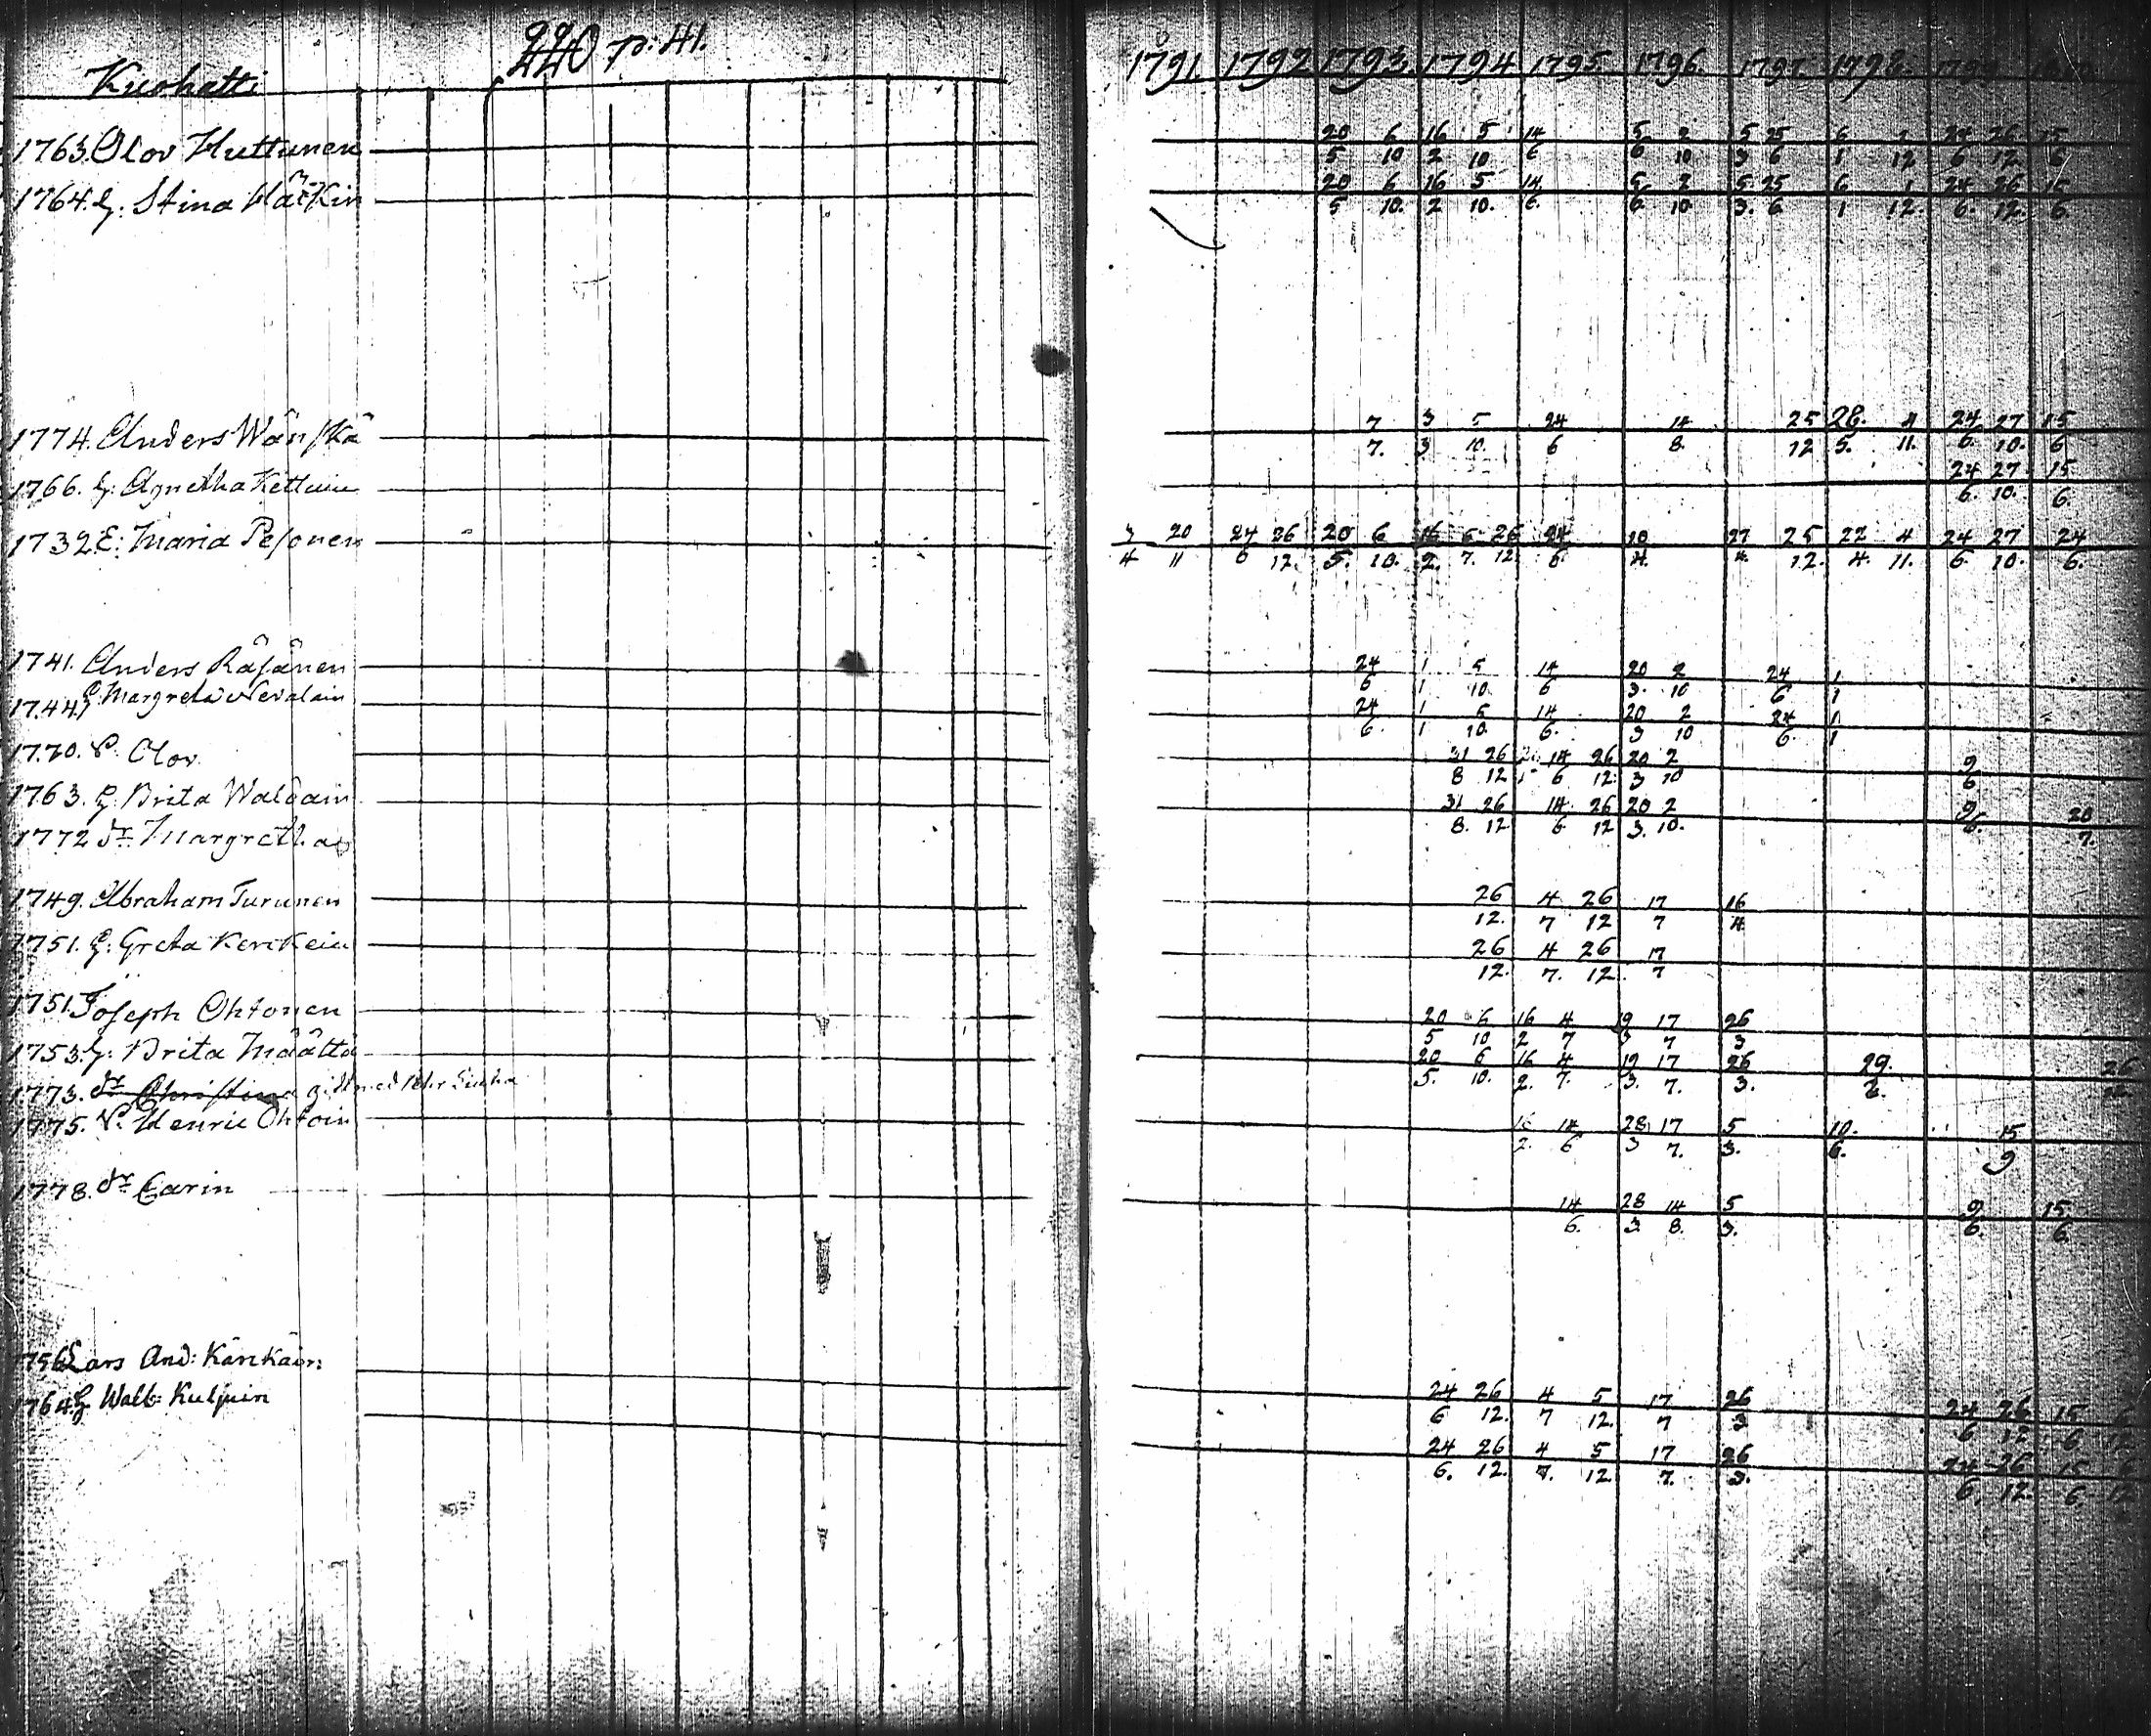 220 p: 41.
Kuohatti
1791. 1792 1793. 1794 1795 1796. 1797. 1798.
1763. Olov Huttunen 20/5 6/10 16/2 5/10 14/6 5/6 2/10 5/3 25/6 6/1 1/12 24/6 26/12 15/6
1764. H: Stina 20/5 6/10. 16/2 5/10. 14/6. 5/6. 2/10 5/3. 25/6 6/1 1/12. 24/6. 26/12 15/6
1774. Anders Wänskä 7/7. 3/3 5/10. 24/6 14/8. 25/12 28./5. 4/11. 24/6. 27/10. 15/6
1766. H: Agnetha 24/6. 27/10. 15/6.
1732 E: Maria Pesonen 3/4 20/11 24/6 26/12. 20/5. 6/10. 16/2. 6/7. 26/12 24/6. 10/4. 27/4. 25/12. 22/4. 4/11. 24/6 27/10. 24/6.
1741. Anders Räsänen 24/6 1/1 5/10. 14/6 20/3. 2/10 24/6 1/1
1744 Margreta Nevalain 24/6. 1/1 5/10. 14/6. 20/3 2/10 24/6. 1/1
1770. S. Olov 31/8 26/12 14/6 26/12. 20/3 2/10 9/6
1763. H: Brita Waldain 31/8. 26/12 14/6 26/12 20/3. 2/10. 9/6. 20/7.
1772 dr. Margretha
1749. Abraham Turunen 26/12. 4/7 26/12 17/7 16/4
1751. H: Greta 26/12. 4/7. 26/12. 17/7
1751 Joseph Ohtonen 20/5 6/10 16/2 4/7 19/3 17/7 26/3
1753. H: Brita Määttä 20/5. 6/10. 16/2. 4/7. 19/3. 17/7. 26/3. 29./
1773. dr Christina gift med
1775. S. Henric Ohtoin 16/2. 14/6 28/3 17/7. 5/3. 10./6. 15/9
1778. dr Carin 14/6. 28/3 14/8. 5/3. 9/6. 15/6
1756 Lars And: 24/6 26/12. 4/7 5/12. 17/7 26/3 24/6 26/12 15/6 6/12
1764. H Walb: Kuljuin 24/6. 26/12. 4/7. 5/12. 17/7. 26/3. 24/6. 26/12. 15/6. 6/12